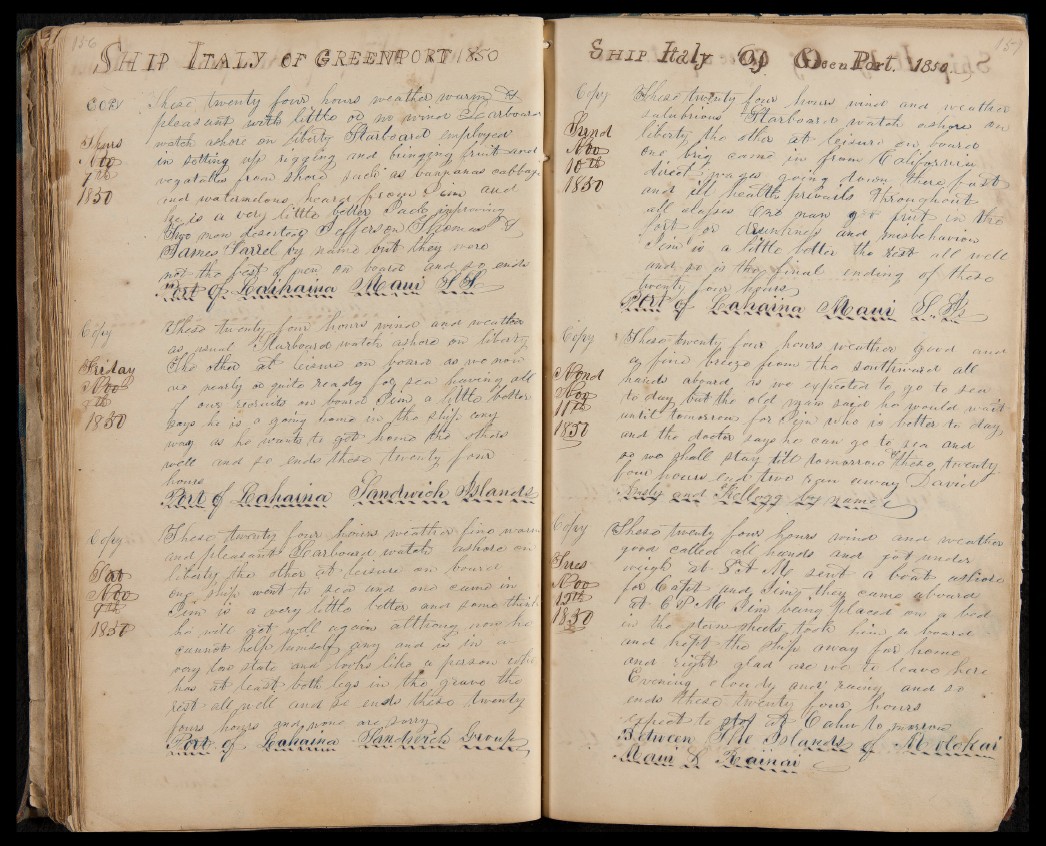 156
SHIP ITALY OF GREENPORT 1850
Copy
Thurs
Nov
7th
1850
These twenty four hours weather warm &
pleasant with little or no wind Larboard
watch ashore on liberty Starboard employed
in setting up rigging and bringing fruit and
vegatables from shore such as bannanas cabbage
and watermelons heard from and
he is a very little better improving
Two men deserted Jefferson Thomas &
James Farrel by name but they were
not the best of men on board and so ends
Port of Lahaina Maui S I
Copy
Friday
Nov
1850
These twenty four hours wind and weather
as usual Starboard watch ashore on liberty
The other at leisure on board as we now
are nearly or quite ready for sea having all
of our recruits on board Jim a little better
says he is a going home in the ship any
way as he wants to get home the others
well and so ends these twenty four
hours
Port of Lahaina Sandwich Islands
Copy
Sat
Nov
9th
1850
These twenty four hours weather fine warm
and pleasant Larboard watch ashore on
liberty the other at leisure on board
one ship went to sea and one came in
Jim is a very little better and some think
he will get well again although now he
cannot help himself any and is in a
very low state and looks like a person who
has at least both legs in the grave the
rest all well and so ends these twenty
fours hours and none are sorry
Port of Lahaina Sandwich Group
157
SHIP Italy Of Green Port. 1850
Copy
Sund
Nov
10th
1850
These twenty four hours wind and weather
salubrious Starboard watch ashore on
liberty the other at leisure on board
one brig came in from California
direct wages going down there fast
and ill health prevails throughout
all classes One man got put in the
fort for drunkness and misbehavior
Jim is a little better the rest all well
and so is the final ending of these
twenty four hours
Port of Lahaina Maui S. Is
Copy
Mond
Nov
11th
1850
These twenty four hours weather good and
a fine breeze from the southward all
hands aboard as we expected to go to sea
to day but the old man said he would wait
until tomorrow for Jim who is better to day
and the doctor says he can go to sea and
so we shall stay till tomorrow These twenty
four hours end two ran away David
and Kellogg by name
Copy
Tues
Nov
12th
1850
These twenty four hours wind and weather
good called all hands and got under
weigh at 8 A M sent a boat ashore
for Capt and Jim they came aboard
at 6 P M Jim being placed on a bed
in the stern sheets took him on board
and kept the ship away for home
and right glad are we to leave here
Evening cloudy and rainy and so
ends these twenty four hours
expect to stop at Oahu to morrow
Between The Islands of Molokai
Maui & Rainai